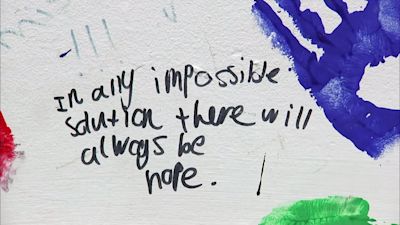 In any impossible
solution there will
always be
hope.